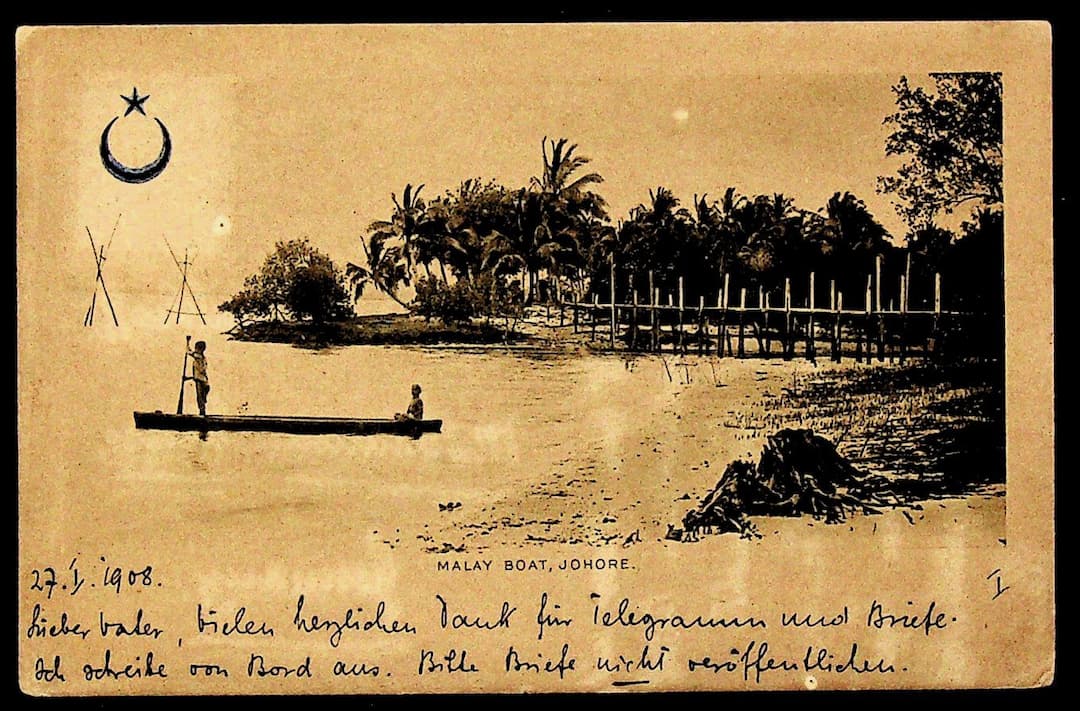 MALAY BOAT, JOHORE.
27.I.1908.
I
Lieber Vater, vielen herzlichen Dank für Telegramm und Briefe.
Ich schreibe von Bord aus. Bitte Briefe nicht veröffentlichen.